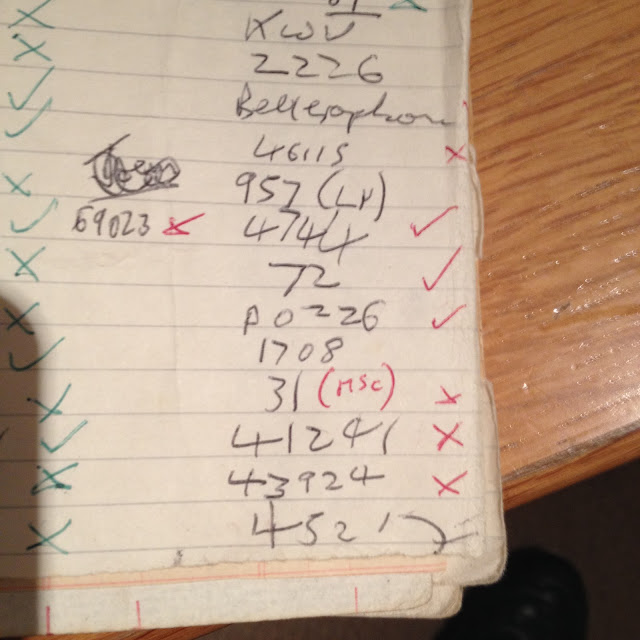 KWV
2226
Bellerophon
46115
957 (LY)
69023 4744
72
D0226
1708
31 (MSC)
41241
43924
45212